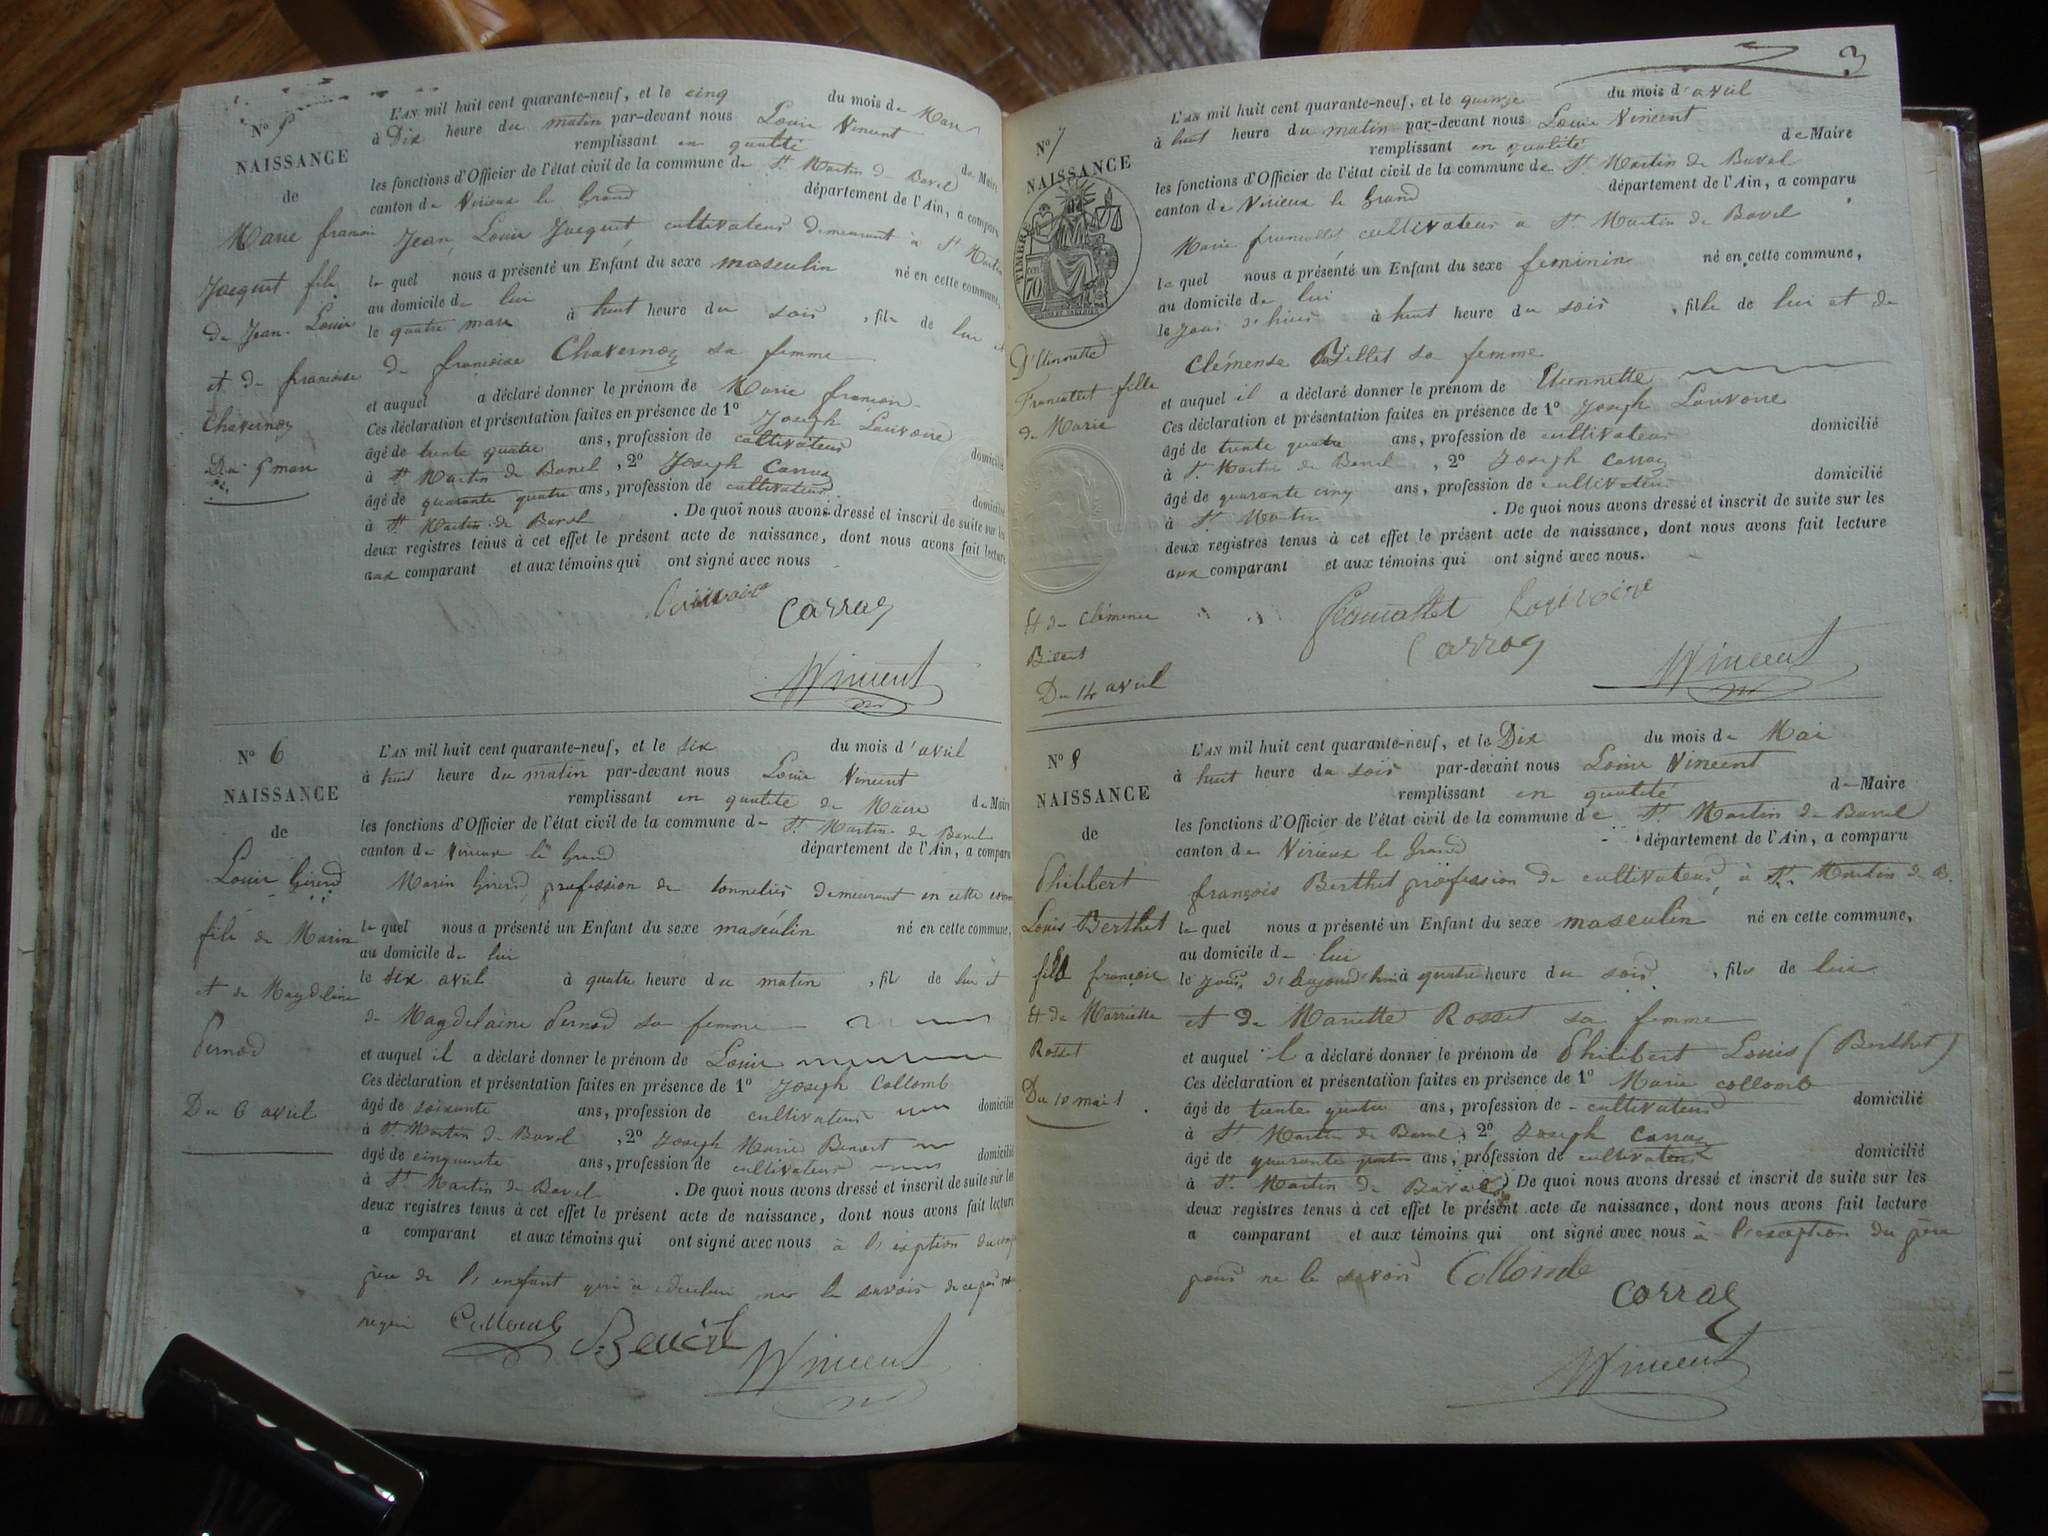 N° 5
NAISSANCE
de
Marie françois
Jacquet fils
de Jean-Louis
et de françoise
Chavernoz
Du 5 mars
L'AN mil huit cent quarante-neuf, et le cinq du mois de Mars
à Dix heure du matin par-devant nous Louis Vincent
remplissant en qualité de Maire
les fonctions d'Officier de l'état civil de la commune de St Martin de Bavel
canton de Virieux le Grand département de l'Ain, a comparu
Jean Louis Jacquet cultivateur demeurant à St Martin
le quel nous a présenté un Enfant du sexe masculin né en cette commune,
au domicile de lui
le quatre mars à huit heure du soir , fils de lui et
de françoise Chavernoz sa femme
et auquel a déclaré donner le prénom de Marie françois
Ces déclaration et présentation faites en présence de 1° Joseph Louvoire
âgé de trente quatre ans, profession de cultivateur domicilié
à St Martin de Bavel , 2° Joseph Carraz
âgé de quarante quatre ans, profession de cultivateur domicilié
à St Martin de Bavel . De quoi nous avons dressé et inscrit de suite sur les
deux registres tenus à cet effet le présent acte de naissance, dont nous avons fait lecture
aux comparant et aux témoins qui ont signé avec nous
Louvoire
Carraz
Vincent
N° 6
NAISSANCE
de
Louis Girerd
fils de Marin
et de Magdelaine
Pernod
Du 6 avril
L'AN mil huit cent quarante-neuf, et le six du mois d'avril
à huit heure du matin par-devant nous Louis Vincent
remplissant en qualité de Maire de Maire
les fonctions d'Officier de l'état civil de la commune de St. Martin de Bavel
canton de Virieux le Grand département de l'Ain, a comparu
Marin Girerd profession de tonnelier demeurant en cette
le quel nous a présenté un Enfant du sexe masculin né en cette commune,
au domicile de lui
le six avril à quatre heure du matin , fils de lui et
de Magdelaine Pernod sa femme
et auquel il a déclaré donner le prénom de Louis
Ces déclaration et présentation faites en présence de 1° Joseph Collomb
âgé de soixante ans, profession de cultivateur domicilié
à St. Martin de Bavel , 2° Joseph Marie Benoit
âgé de cinquante ans, profession de cultivateur domicilié
à St. Martin de Bavel . De quoi nous avons dressé et inscrit de suite sur les
deux registres tenus à cet effet le présent acte de naissance, dont nous avons fait lecture
a comparant et aux témoins qui ont signé avec nous à l'exption du
père de l'enfant qui a déclaré le savoir de ce
requi Collomb Benoit
Vincent
3
N° 7
NAISSANCE
de
TIMBRE
70
D'Etiennette
Francallet fille
de Marie
et de Clémence
Billet
Du 14 avril
L'AN mil huit cent quarante-neuf, et le quinze du mois d'avril
à huit heure du matin par-devant nous Louis Vincent
remplissant en qualité de Maire
les fonctions d'Officier de l'état civil de la commune de St. Martin de Bavel
canton de Virieux le Grand département de l'Ain, a comparu
Marie francallet cultivateur à St Martin de Bavel
le quel nous a présenté un Enfant du sexe feminin né en cette commune,
au domicile de lui
le jour d'hier à huit heure du soir , fille de lui et de
Clémense Billet sa femme
et auquel il a déclaré donner le prénom de Etiennette
Ces déclaration et présentation faites en présence de 1° Joseph Louvoire
âgé de trente quatre ans, profession de cultivateur domicilié
à St Martin de Bavel , 2° Joseph Carraz
âgé de quarante cinq ans, profession de cultivateur domicilié
à St. Martin . De quoi nous avons dressé et inscrit de suite sur les
deux registres tenus à cet effet le présent acte de naissance, dont nous avons fait lecture
aux comparant et aux témoins qui ont signé avec nous.
francallet Louvoire
Carraz
Vincent
N° 8
NAISSANCE
de
Philibert
Louis Berthet
fils françois
et de Marriette
Rosset
Du 10 mai
L'AN mil huit cent quarante-neuf, et le Dix du mois de Mai
à huit heure du soir par-devant nous Louis Vincent
remplissant en qualité de Maire
les fonctions d'Officier de l'état civil de la commune de St. Martin de Bavel
canton de Virieux le Grand département de l'Ain, a comparu
françois Berthet profession de cultivateur, à St. Martin de B.
le quel nous a présenté un Enfant du sexe masculin né en cette commune,
au domicile de lui
le jour d'aujourd'hui à quatre heure du soir , fils de lui
et de Mariette Rosset sa femme
et auquel il a déclaré donner le prénom de Philibert Louis (Berthet)
Ces déclaration et présentation faites en présence de 1° Marie collomb
âgé de trente quatre ans, profession de cultivateur domicilié
à St Martin de Bavel, 2° Joseph Carraz
âgé de quarante quatre ans, profession de cultivateur domicilié
à St. Martin de Bavel De quoi nous avons dressé et inscrit de suite sur les
deux registres tenus à cet effet le présent acte de naissance, dont nous avons fait lecture
a comparant et aux témoins qui ont signé avec nous à l'exception du père
pour ne le savoir Collombe
Carraz
Vincent